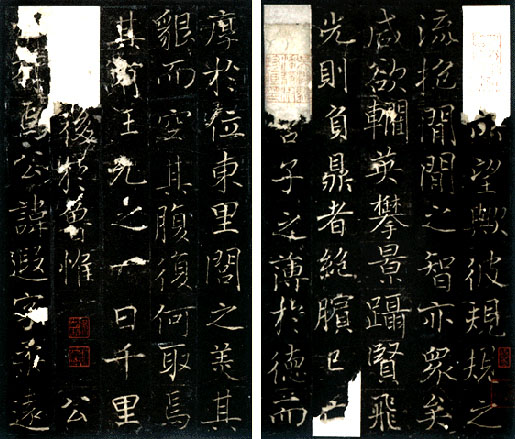 望歟彼規規之
流挹閒閒之智亦衆矣
咸欲英攀景躡賢飛
光則負鼎者絶臏已
子之薄於德而
厚於位東里閭之美其
貌而空其腹復何取焉
其前王允之一日千里
後於魯惟 公
焉公諱遐字遠